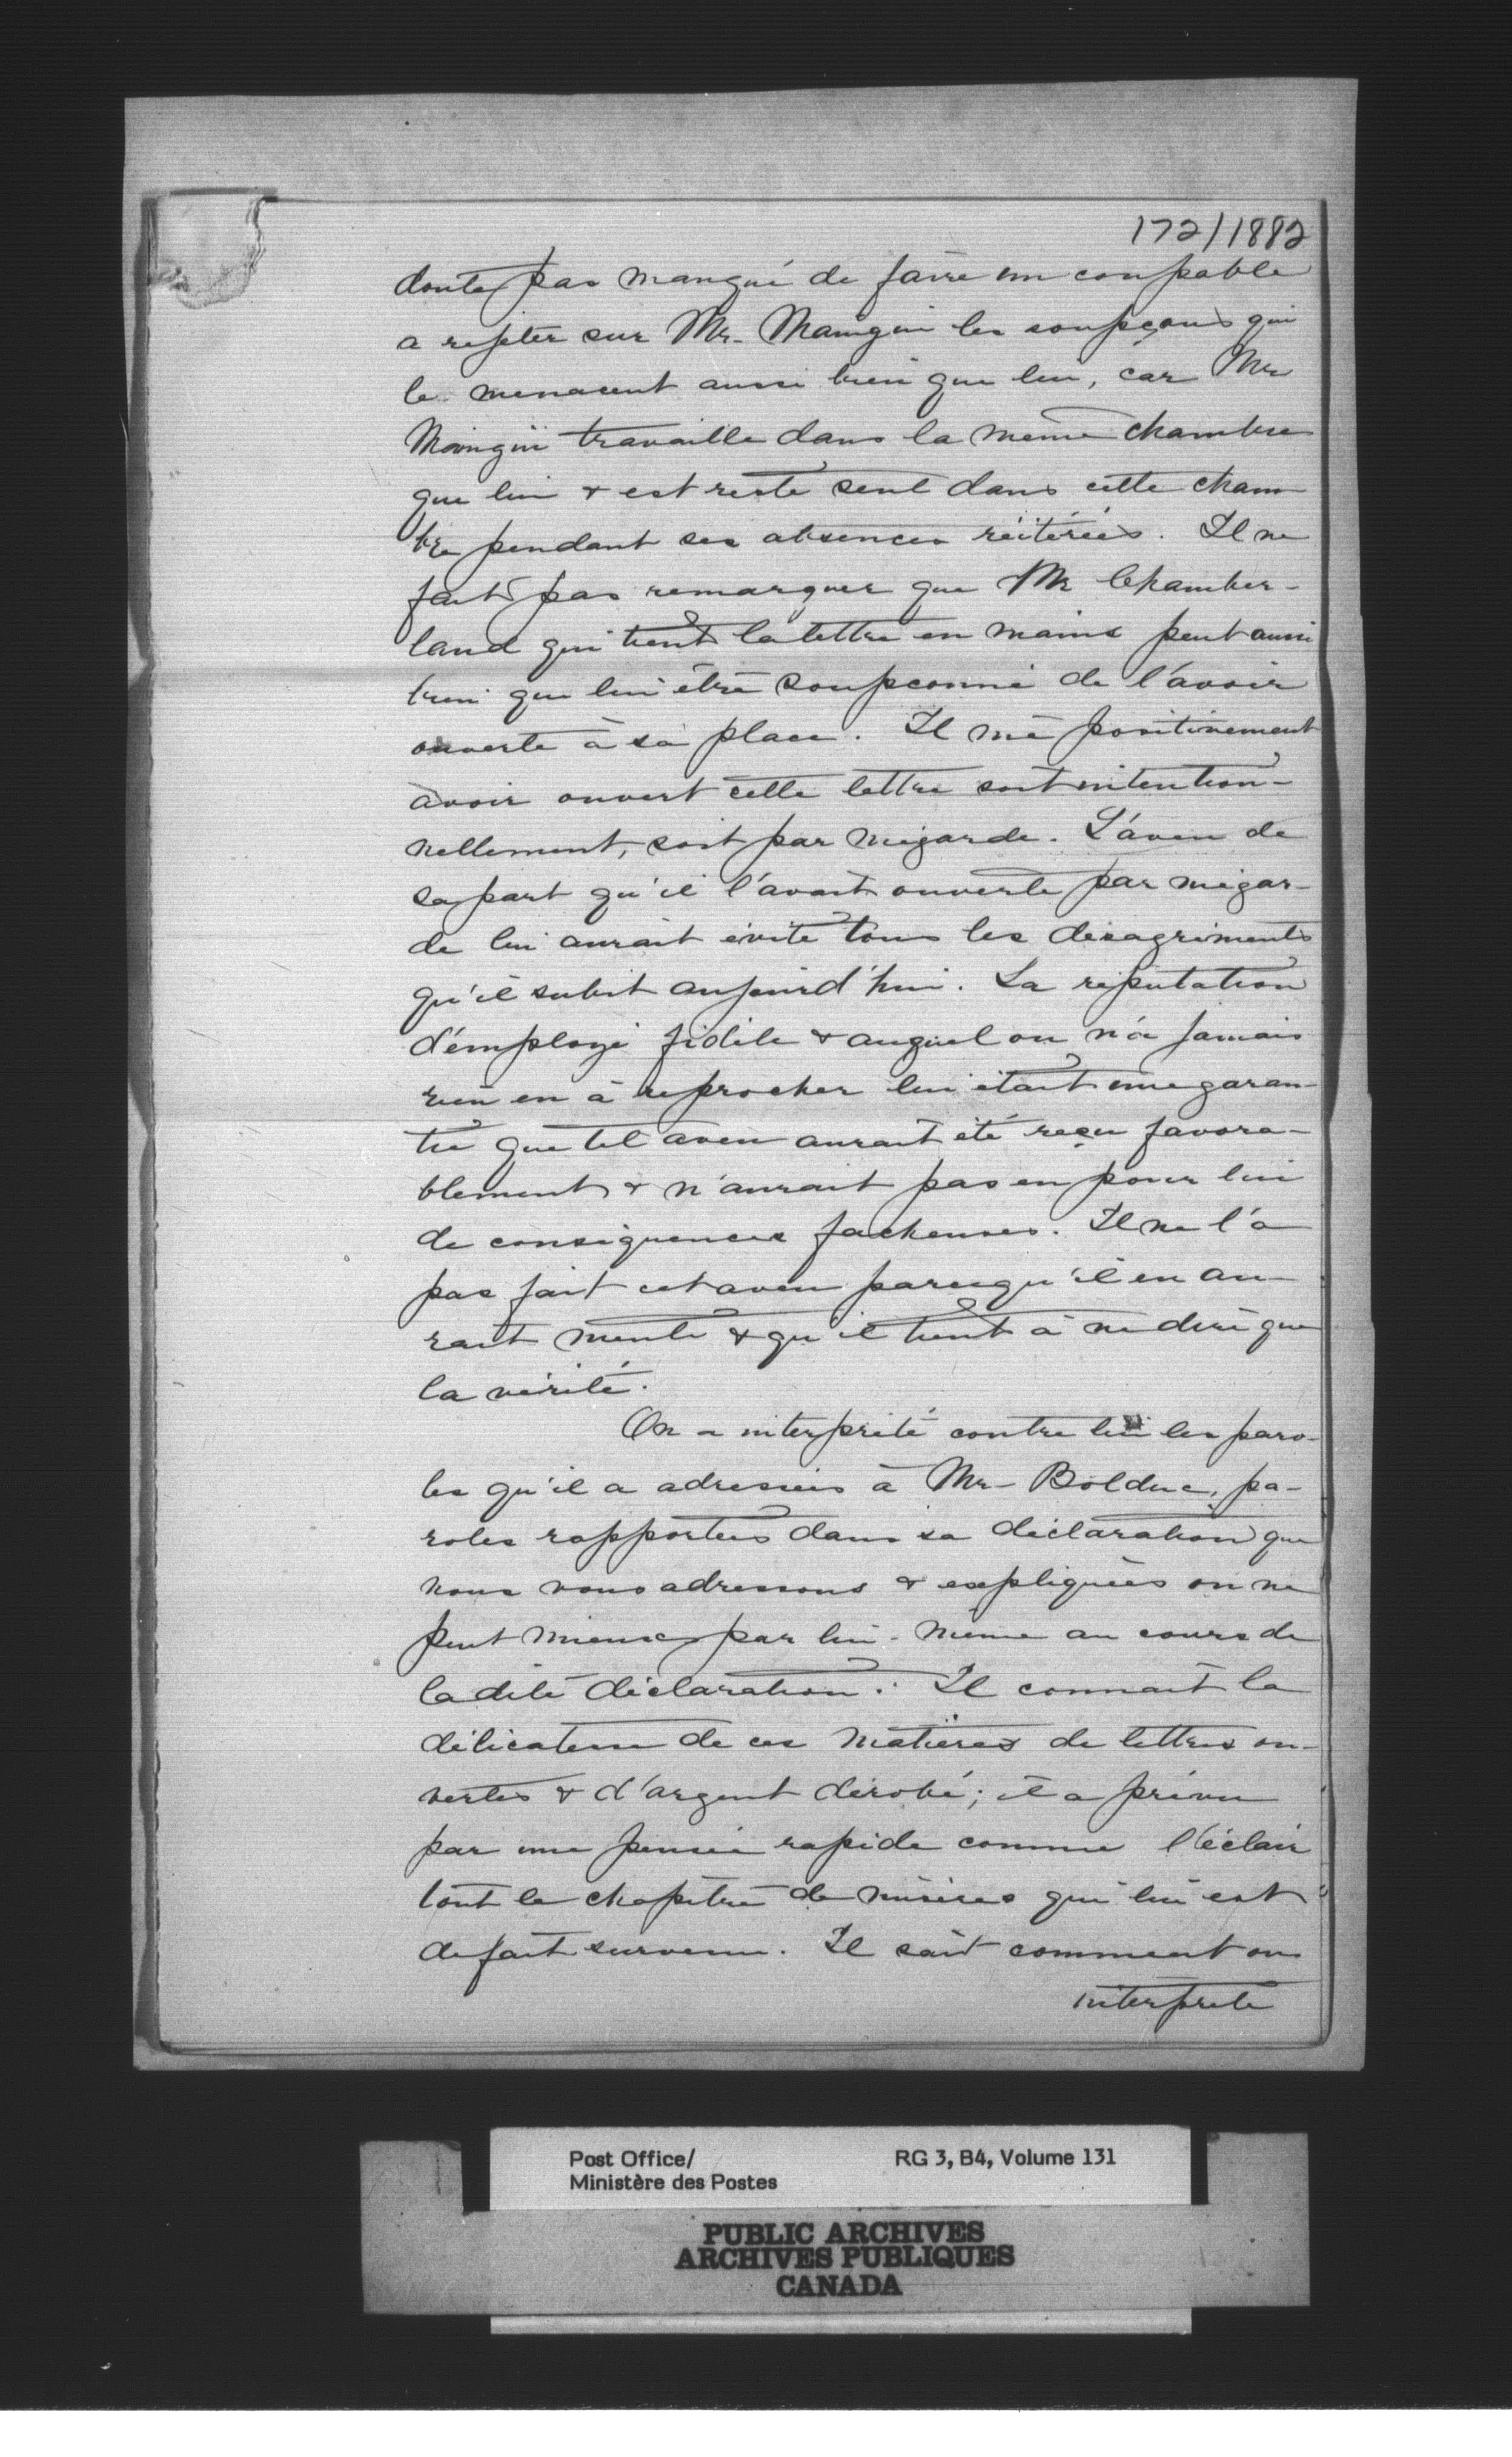 172/1882
doute pas manqué de faire un coupable
a rejeter sur Mr. Mainguy les soupçons qui
le menacent aussi bien que lui, car Mr
Mainguy travaille dans la même chambre
que lui & est resté seul dans cette cham
bre pendant ses absences réitérées. Il ne
fait pas remarquer que Mr Chamber-
land qui tient la lettre en mains peut aussi
bien que lui être soupconné de l'avoir
ouverte à sa place. Il nie positivement
avoir ouvert cette lettre soit intention-
nellement, soit par mégarde. L'aveu de
sa part qu'il l'avait ouverte par mégar-
de lui aurait évité tous les désagréments
qu'il subit aujourd'hui. La réputation
d'employé fidèle & auquel on n'a jamais
rien eu à reprocher lui était une garan-
tie que tel aveu aurait été reçu favora-
blement & n'aurait pas eu pour lui
de conséquences facheuses. Il ne l'a
pas fait cet aveu parcequ'il en au-
rait menti & qu'il tient à ne dire que
la vérité.
On a interprété contre lui les paro-
les qu'il a adressées à Mr. Bolduc, pa-
roles rapportées dans sa déclaration que
nous vous adressons & expliquées on ne
peut mieux par lui-même au cours de
la dite déclaration. Il connait la
délicatesse de ces matières de lettres ou-
vertes & d'argent dérobé; il a prévu
par une pensée rapide comme l'éclair
tout le chapitre de misères qui lui est
de fait survenu. Il sait comment on
interprete
Post Office/
Ministère des Postes
RG 3, B4, Volume 131
PUBLIC ARCHIVES
ARCHIVES PUBLIQUES
CANADA